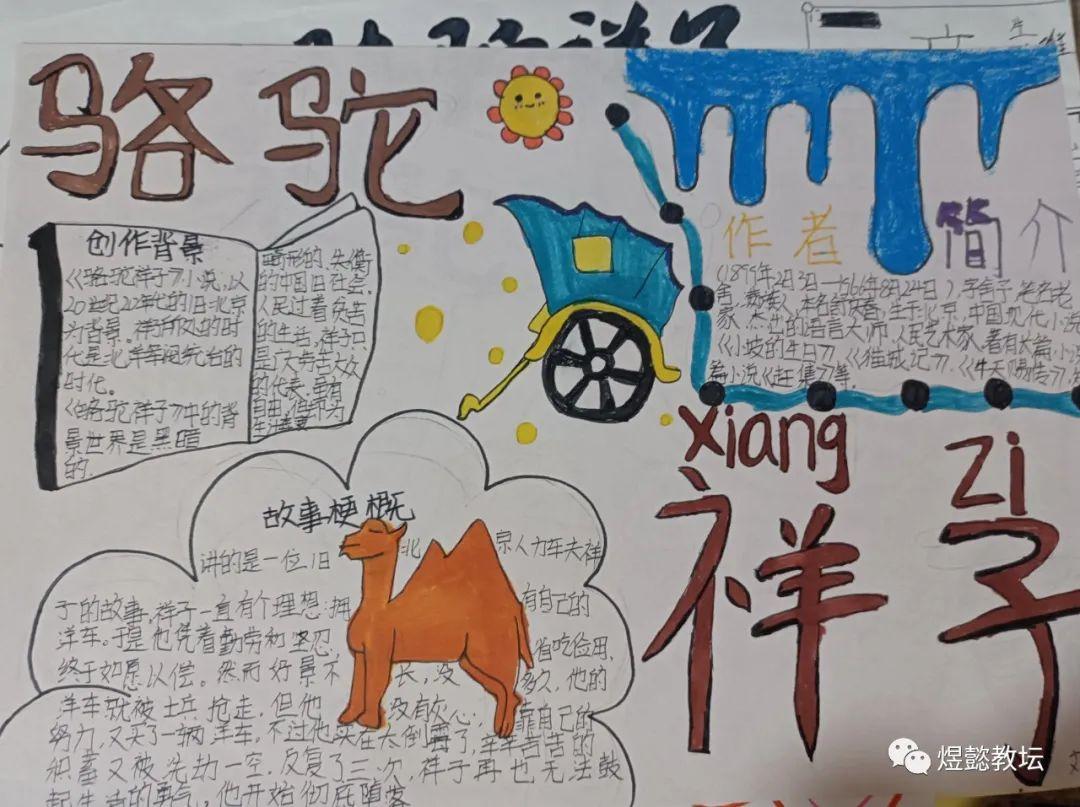 骆驼
创作背景
《骆驼祥子》小说,以
20世纪22年代的旧北京
为背景。祥子所处的时
代是北洋军阀统治的
时代。
《骆驼祥子》中的背
景世界是黑暗
的.
畸形的、失衡
的中国旧社会,
人民过着贫苦
的生活,祥子只
是广大劳苦大众
的代表。
自由,
作者简介
(1899年2月3日—1966年8月24日),字舍予,老
舍,满族人,本名舒庆春,生于北京,中国现代小说
家,杰出的语言大师,人民艺术家,著有长篇小说
《小坡的生日》,《猫城记》,《牛天赐传》,
篇小说《赶集》等.
xiang zi
祥子
故事梗概
讲的是一位旧北京人力车夫祥
子的故事,祥子一直有个理想:拥有自己的
洋车。于是他凭着勤劳和坚忍,省吃俭用,
终于如愿以偿。然而好景不长,没多久,他的
洋车就被士兵抢走,但他没有灰心..靠自己的
努力,又买了一辆洋车,不过他实在太倒霉了,辛辛苦苦的
积蓄又被洗劫一空,反复了三次,祥子再也无法鼓
起生活的勇气,他开始彻底堕落
煜懿教坛